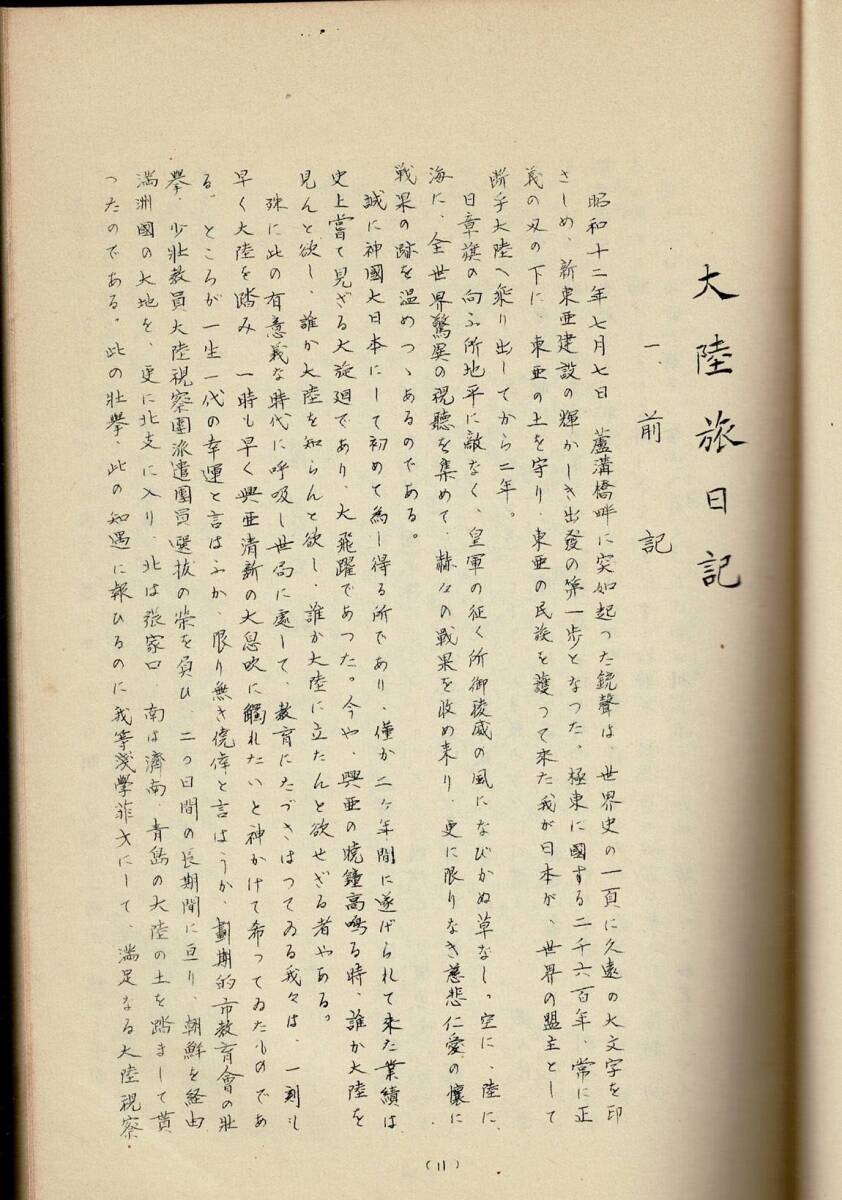 大陸旅日記
一、前記
昭和十二年七月七日　蘆溝橋畔に突如起つた銃聲は、世界史の一頁に久遠の大文字を印
さしめ、新東亜建設の輝かしき出發の第一歩となつた。極東に國する二千六百年、常に正
義の刄の下に、東亜の土を守り、東亜の民族を護つて来た我が日本が、世界の盟主として
断乎大陸へ乘り出してから二年。
日章旗の向ふ所地平に敵なく、皇軍の征く所御稜威の風になびかぬ草なし。空に、陸に
海に、全世界驚異の視聽を集めて、赫々の戰果を收め来り、更に限りなき慈悲仁愛の懐に
戦果の跡を温めつゝあるのである。
誠に神國大日本にして初めて為し得る所であり、僅か二ヶ年間に遂げられて来た業績は
史上嘗て見ざる大旋廻であり、大飛躍であつた。今や、興亜の暁鐘高鳴る時、誰か大陸を
見んと欲し、誰か大陸を知らんと欲し、誰か大陸に立たんと欲せざる者やある。
殊に此の有意義な時代に呼吸し世局に處して、教育にたづさはつてゐる我々は、一刻も
早く大陸を踏み　一時も早く興亜清新の大息吹に觸れたいと神かけて希つてゐたものであ
る。ところが一生一代の幸運と言はふか、限り無き僥倖と言はうか、劃期的市教育會の壯
擧、少壯教員大陸視察團派遣團員選拔の榮を負ひ　二つ日間の長期間に亘り、朝鮮を経由
満洲國の大地を、更に北支に入り、北は張家口、南は濟南、青島の大陸の土を踏まして貰
つたのである。此の壯擧、此の知遇に報ひるのに我等淺學菲才にして、満足なる大陸視察
(11)